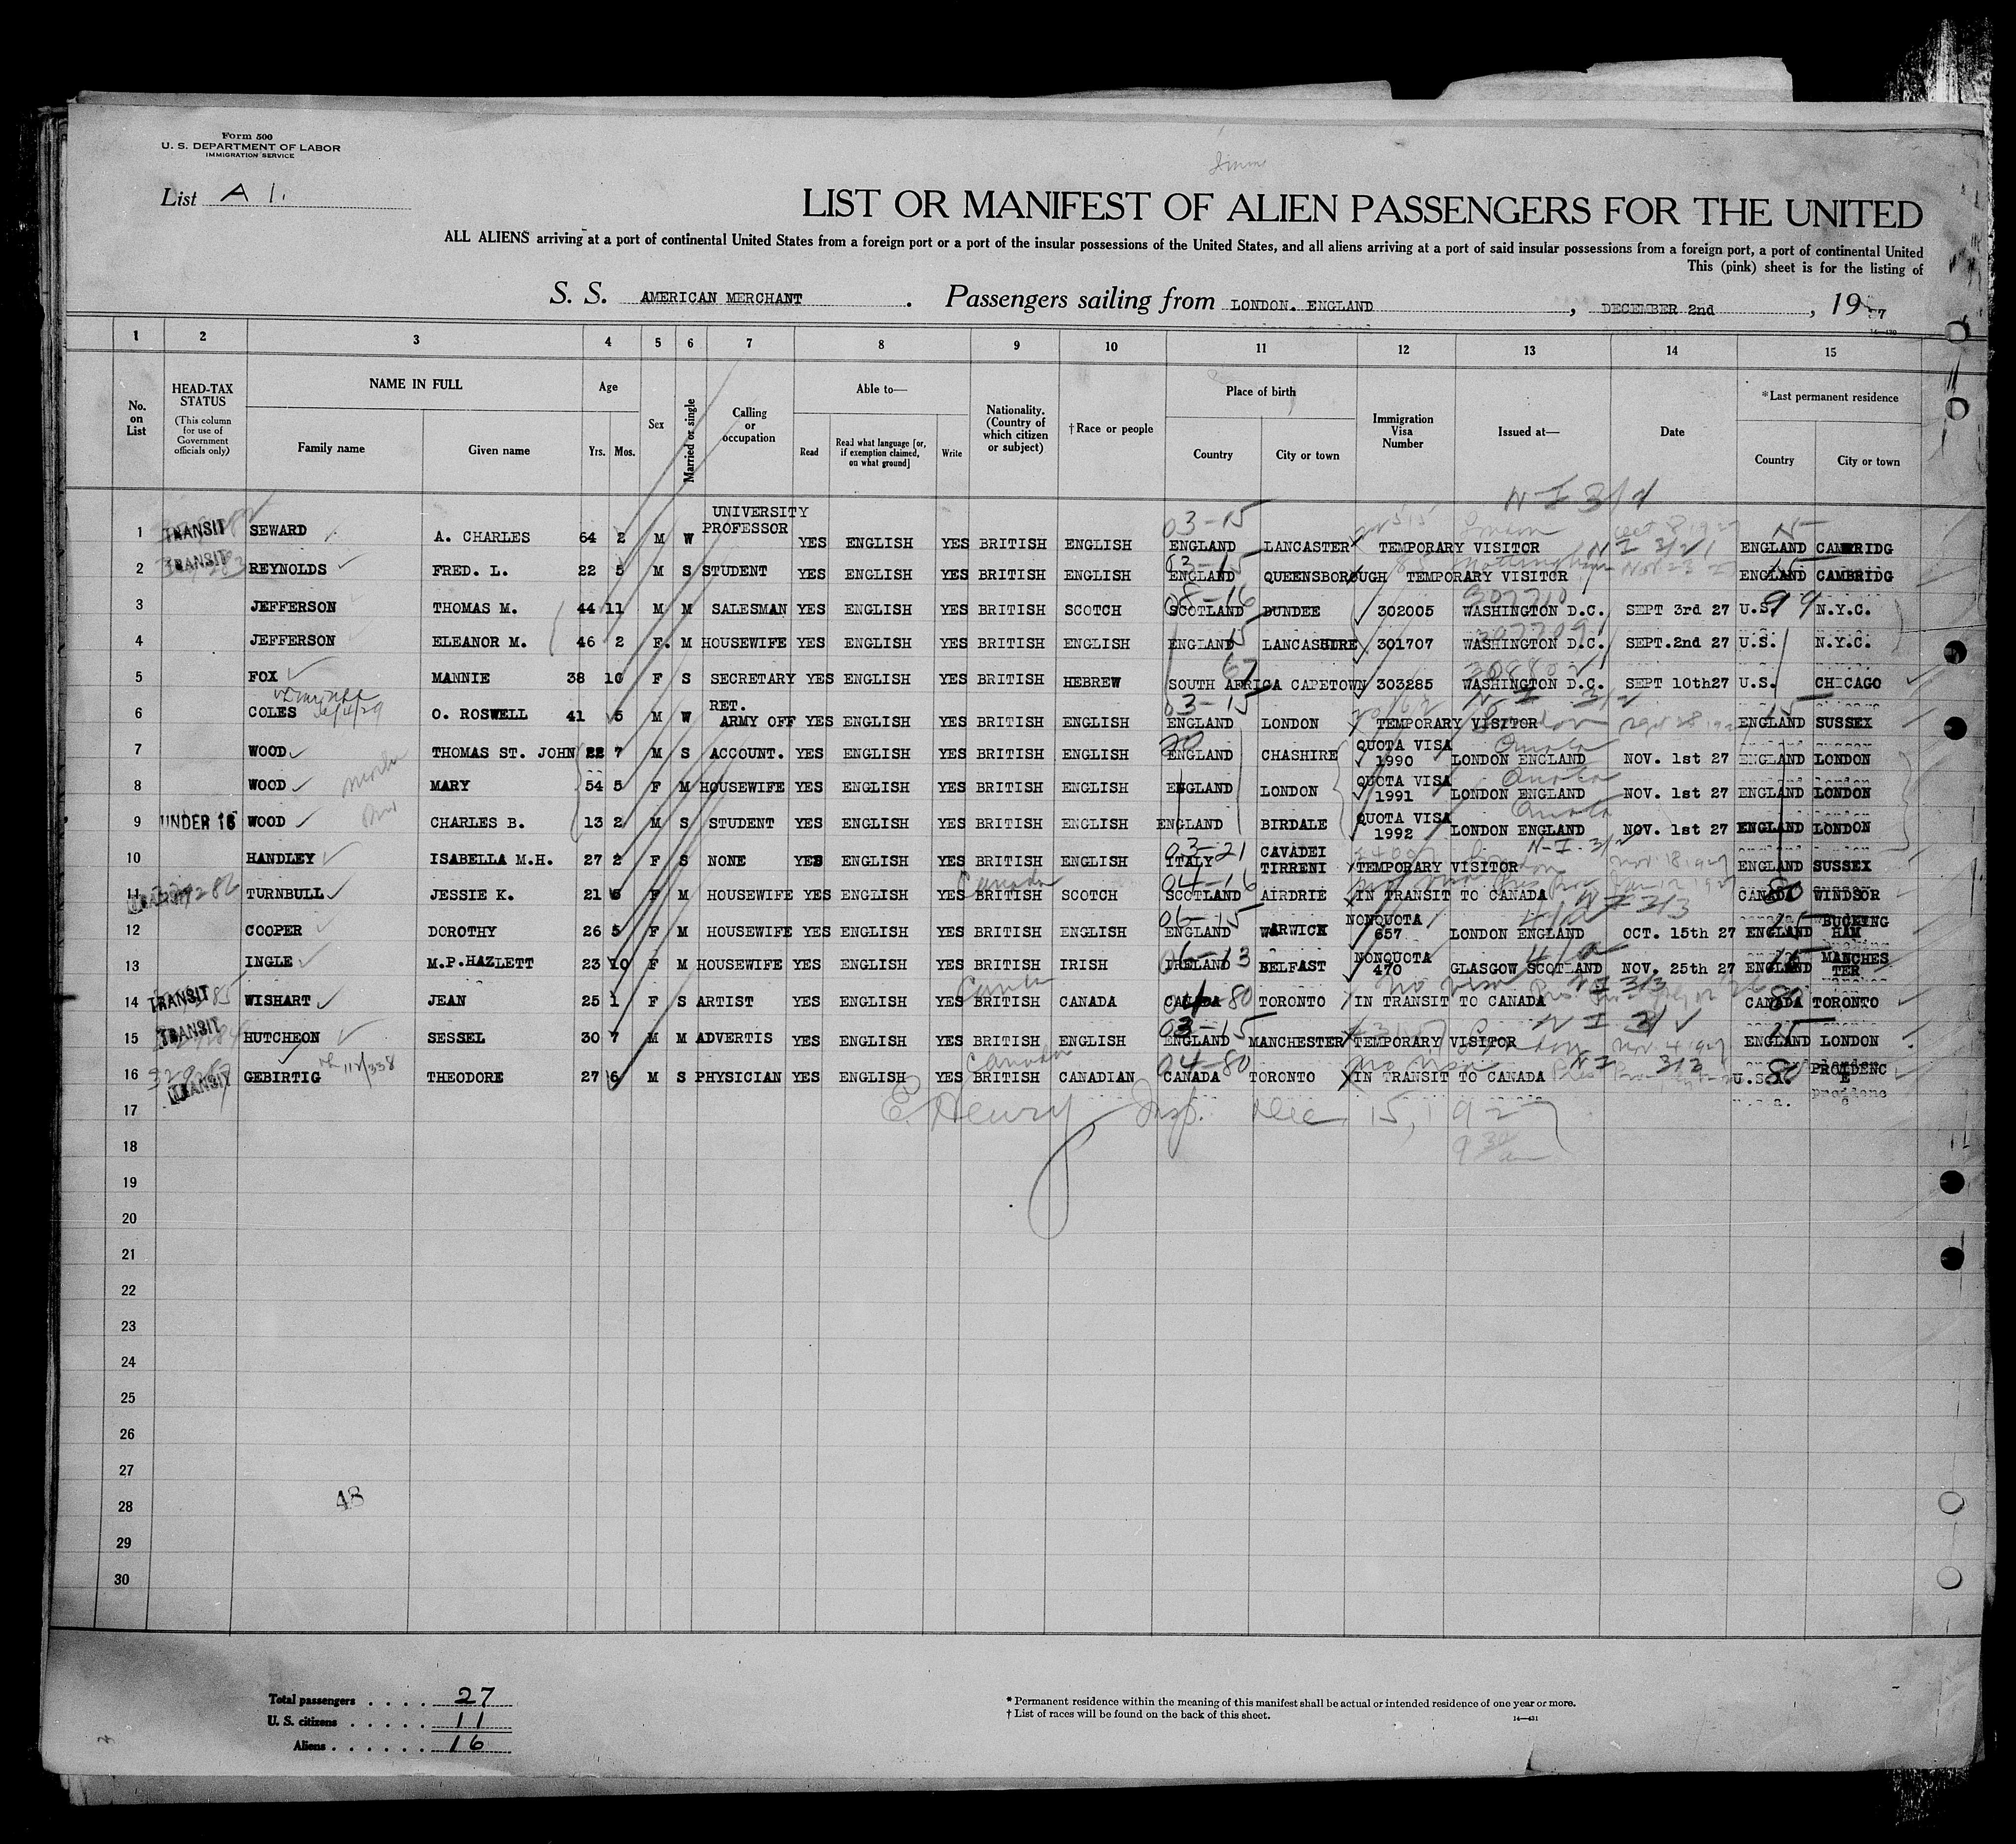 Form 500
U. S. DEPARTMENT OF LABOR
IMMIGRATION SERVICE
List A 1.
LIST OR MANIFEST OF ALIEN PASSENGERS FOR THE UNITED
ALL ALIENS arriving at a port of continental United States from a foreign port or a port of the insular possessions of the United States, and all aliens arriving at a port of said insular possessions from a foreign port, a port of continental United
This (pink) sheet is for the listing of
S. S. AMERICAN MERCHANT . Passengers sailing from LONDON. ENGLAND , DECEMBER 2nd , 19 7
1 2 3 4 5 6 7 8 9 10 11 12 13 14 15
No. on List
HEAD-TAX STATUS (This column for use of Government officials only)
NAME IN FULL Family name Given name
Age Yrs. Mos.
Sex
Married or single
Calling or occupation
Able to— Read Read what language [or, if exemption claimed, on what ground] Write
Nationality. (Country of which citizen or subject)
†Race or people
Place of birth Country City or town
Immigration Visa Number
Issued at—
Date
*Last permanent residence Country City or town
1 TRANSIT SEWARD A. CHARLES 64 2 M W UNIVERSITY PROFESSOR YES ENGLISH YES BRITISH ENGLISH 03-15 ENGLAND LANCASTER TEMPORARY VISITOR ENGLAND CAMBRIDG
2 TRANSIT REYNOLDS FRED. L. 22 5 M S STUDENT YES ENGLISH YES BRITISH ENGLISH 03-15 ENGLAND QUEENSBOROUGH TEMPORARY VISITOR ENGLAND CAMBRIDG
3 JEFFERSON THOMAS M. 44 11 M M SALESMAN YES ENGLISH YES BRITISH SCOTCH 08-16 SCOTLAND DUNDEE 302005 WASHINGTON D.C. SEPT 3rd 27 U.S. 99 N.Y.C.
4 JEFFERSON ELEANOR M. 46 2 F. M HOUSEWIFE YES ENGLISH YES BRITISH ENGLISH 15 ENGLAND LANCASHIRE 301707 WASHINGTON D.C. SEPT.2nd 27 U.S. N.Y.C.
5 FOX MANNIE 38 10 F S SECRETARY YES ENGLISH YES BRITISH HEBREW 67 SOUTH AFRICA CAPETOWN 303285 WASHINGTON D.C. SEPT 10th27 U.S. CHICAGO
6 COLES O. ROSWELL 41 5 M W RET. ARMY OFF YES ENGLISH YES BRITISH ENGLISH 03-15 ENGLAND LONDON TEMPORARY VISITOR ENGLAND SUSSEX
7 WOOD THOMAS ST. JOHN 22 7 M S ACCOUNT. YES ENGLISH YES BRITISH ENGLISH ENGLAND CHASHIRE QUOTA VISA 1990 Quota LONDON ENGLAND NOV. 1st 27 ENGLAND LONDON
8 WOOD MARY 54 5 F M HOUSEWIFE YES ENGLISH YES BRITISH ENGLISH ENGLAND LONDON QUOTA VISA 1991 Quota LONDON ENGLAND NOV. 1st 27 ENGLAND LONDON
9 UNDER 16 WOOD CHARLES B. 13 2 M S STUDENT YES ENGLISH YES BRITISH ENGLISH ENGLAND BIRDALE QUOTA VISA 1992 Quota LONDON ENGLAND NOV. 1st 27 ENGLAND LONDON
10 HANDLEY ISABELLA M.H. 27 2 F S NONE YES ENGLISH YES BRITISH ENGLISH 03-21 ITALY CAVADEI TIRRENI TEMPORARY VISITOR ENGLAND SUSSEX
11 TURNBULL JESSIE K. 21 6 F M HOUSEWIFE YES ENGLISH YES Canada BRITISH SCOTCH 04-16 SCOTLAND AIRDRIE IN TRANSIT TO CANADA CANADA 80 WINDSOR
12 COOPER DOROTHY 26 5 F M HOUSEWIFE YES ENGLISH YES BRITISH ENGLISH 06-15 ENGLAND WARWICK NONQUOTA 657 4/a LONDON ENGLAND OCT. 15th 27 ENGLAND BUCKINGHAM
13 INGLE M.P.HAZLETT 23 10 F M HOUSEWIFE YES ENGLISH YES BRITISH IRISH 06-13 IRELAND BELFAST NONQUOTA 470 4/a GLASGOW SCOTLAND NOV. 25th 27 ENGLAND MANCHESTER
14 TRANSIT WISHART JEAN 25 1 F S ARTIST YES ENGLISH YES BRITISH CANADA 04-80 CANADA TORONTO IN TRANSIT TO CANADA CANADA 80 TORONTO
15 TRANSIT HUTCHEON SESSEL 30 7 M M ADVERTIS YES ENGLISH YES BRITISH ENGLISH 03-15 ENGLAND MANCHESTER TEMPORARY VISITOR 15 ENGLAND LONDON
16 TRANSIT GEBIRTIG THEODORE 27 6 M S PHYSICIAN YES ENGLISH YES Canada BRITISH CANADIAN 04-80 CANADA TORONTO No visa IN TRANSIT TO CANADA U.S.A. 80 PROIDENCE
17 E. Henry Insp. Dec 15, 192
18 9 30 am
19
20
21
22
23
24
25
26
27
28 48
29
30
Total passengers . . . . 27
U. S. citizens . . . . . 11
Aliens . . . . . . 16
* Permanent residence within the meaning of this manifest shall be actual or intended residence of one year or more.
† List of races will be found on the back of this sheet.
14—431